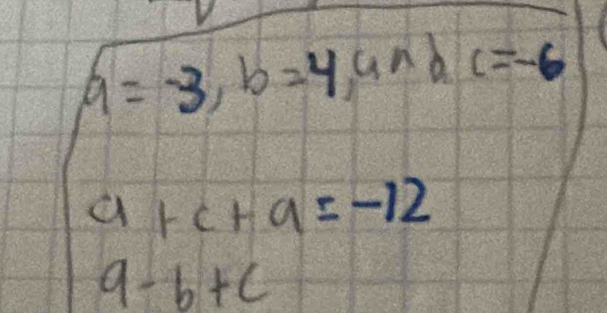 a = -3, b = 4, and c = -6
a + c + a = -12
a - b + c